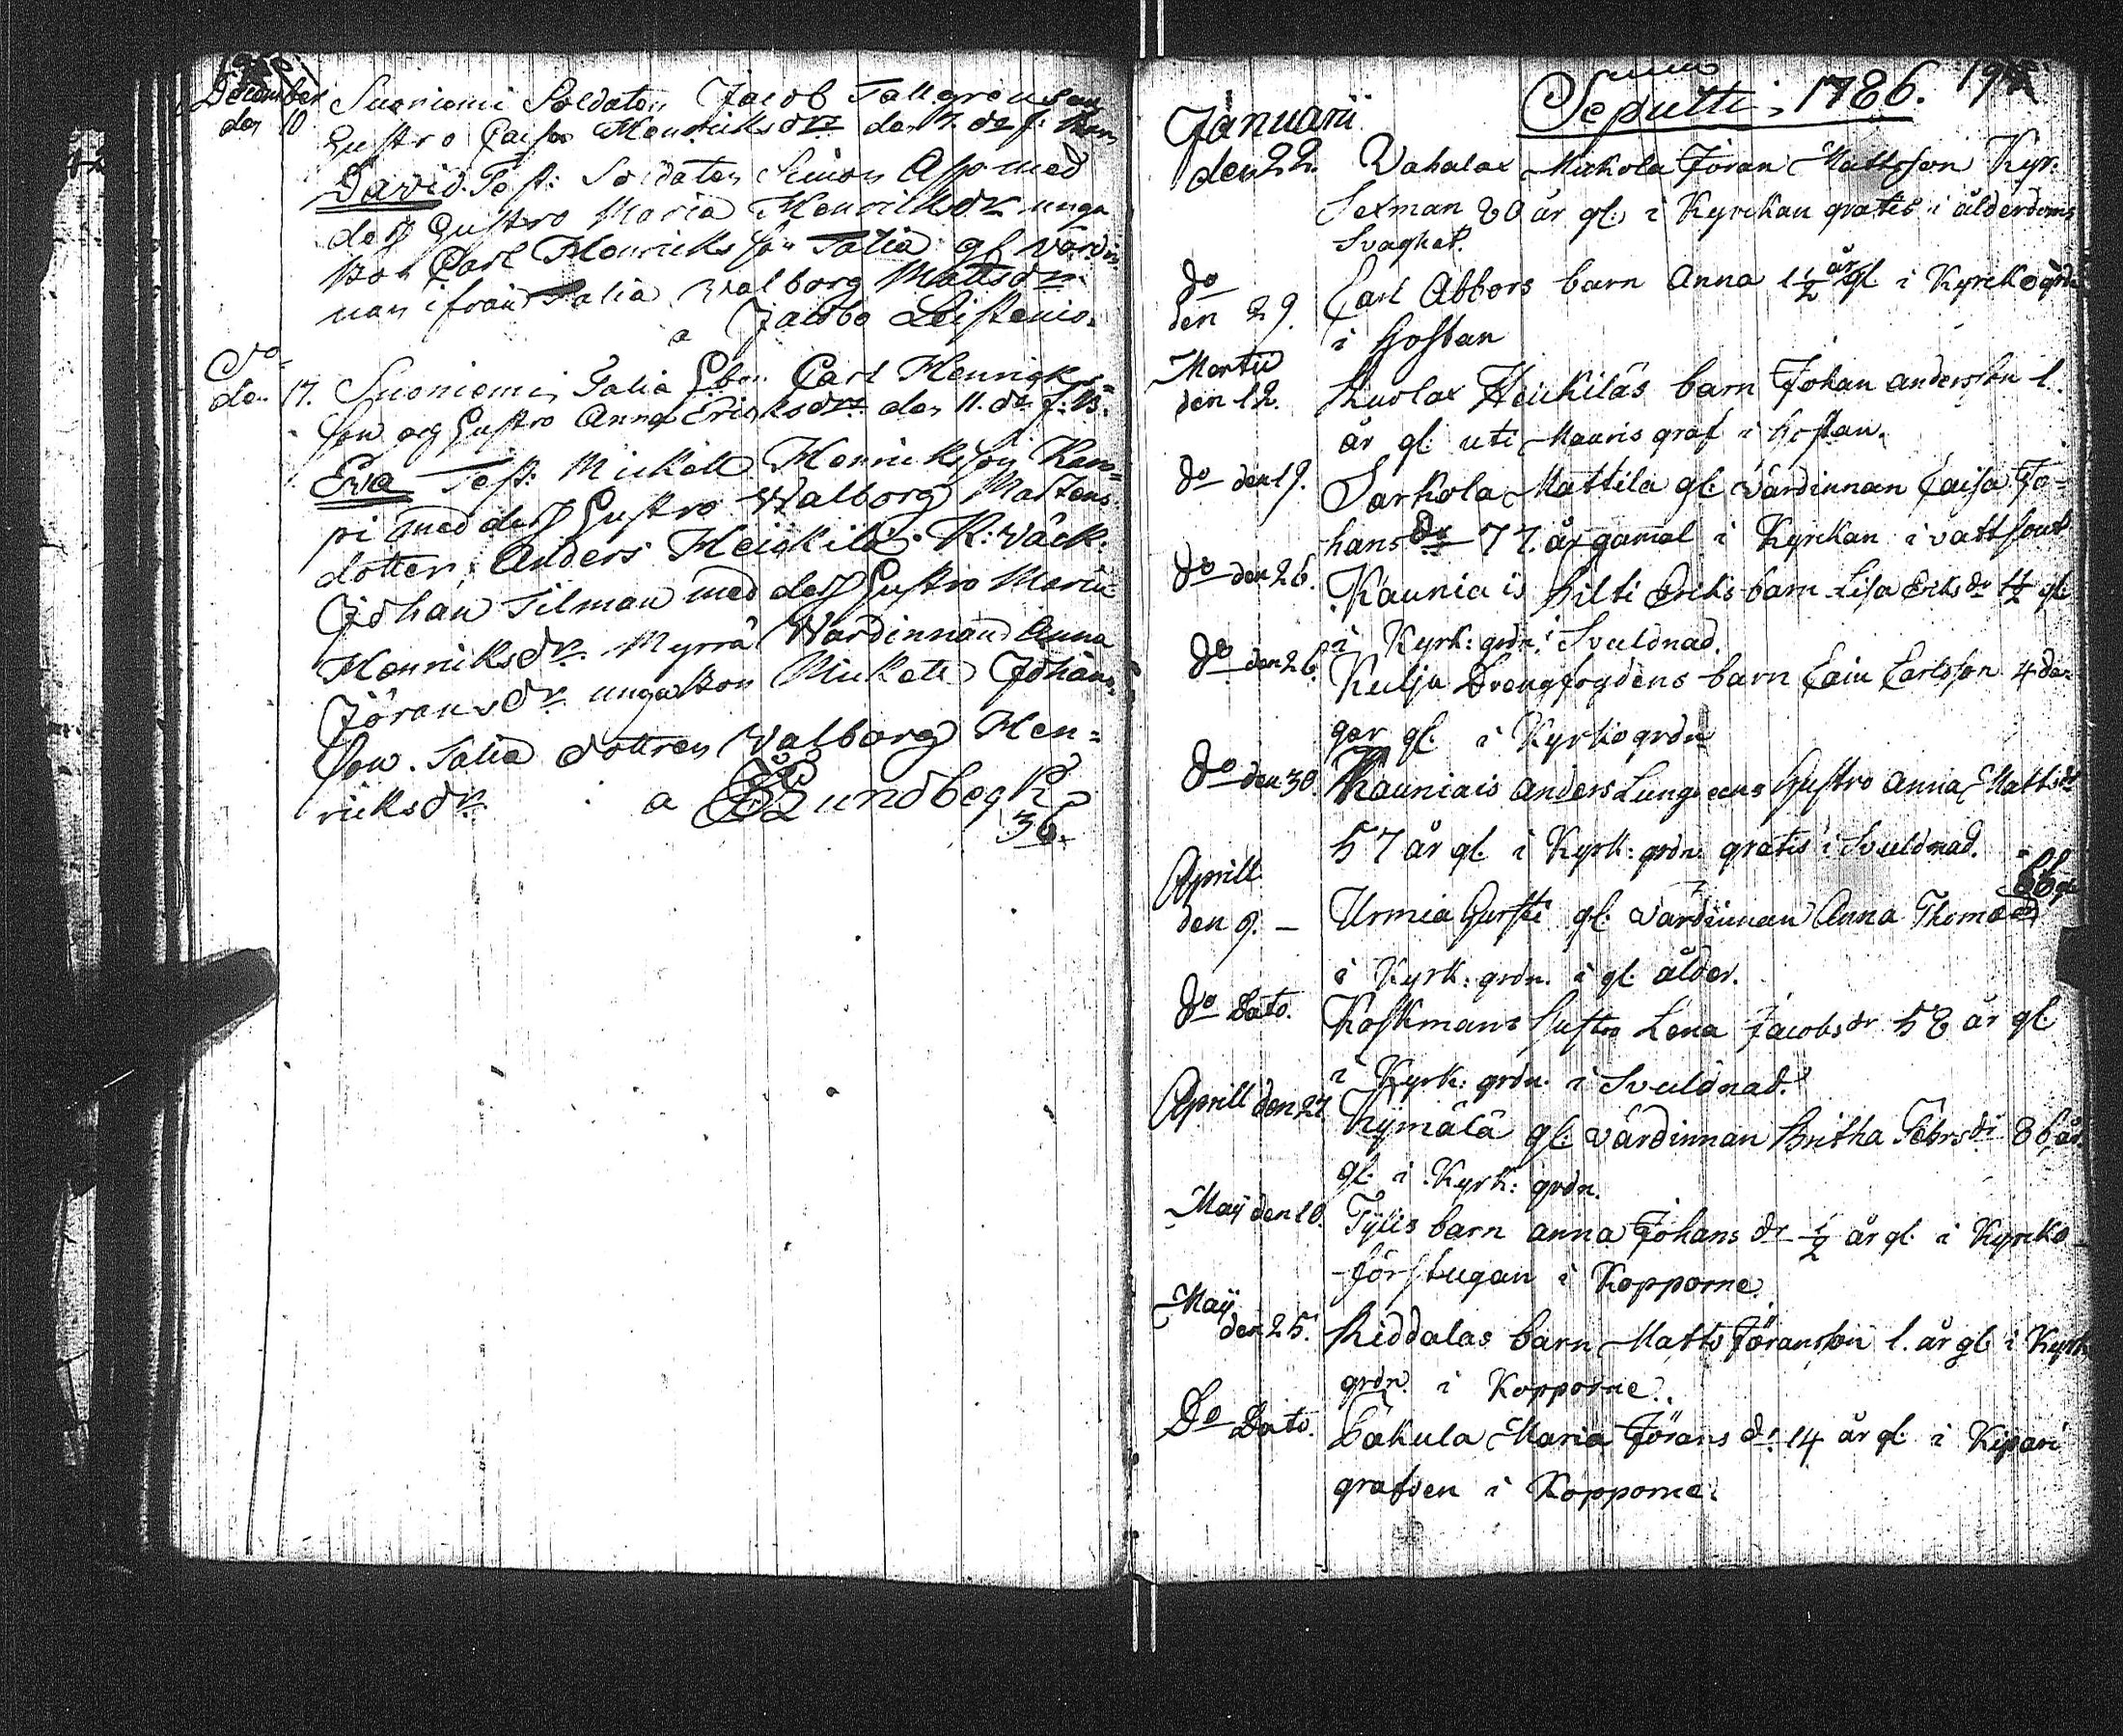 December Suoniemi Soldaten Jacob Tallgren
den 10 hustro Caisa Henriksdr den 7. do f.
David. Test: Soldaten Simon Asp med
dess hustro Maria Henriksdr unga
Carl Henriksson Talia gl. värdin
nan ifrån Talia Walborg Mattsdr
a Jacobo Leistenio.
Do
den 17. Suoniemi Talia Carl Henriks
son og hustro Anna Eriksdr den 11. do f. B.
Eva Test: Mickell Henriksson
pi med dess hustro Walborg Mårtens
dotter, Anders Heickilä. R:
Johan Tilman med dess hustro Maria
Henriksdr. Myrrä Wärdinnan Anna
Jöransdr unga Mickell Johans
son. Talia dottren Walborg Hen=
ricksdr. a Lundbeg
36.
Anno
Januarii Sepulti, 1786.
den 22. Wahalax Mickola Jöran Mattsson Kyr.
Sexman 80 år gl: i Kyrckan gratis i ålderdoms
Svaghet.
do
den 29. Carl Abbors barn Anna 1 1/2 år gl i Kyrckogrdn
i Hostan
Martii
den 12. Heickiläs barn Johan Andersson 1.
år gl: uti Mauris graf i hostan.
do den 19. Sarkola Mattila gl: värdinnan Caisa Jo=
hansdr 77. år gamal i Kyrckan i vattsout
do den 26. Kauniais Pilti Eriks barn Lisa Eriksdr gl:
i Kyrk: grdn. i Svuldnad.
do den 26. Keilju Drengfogdens barn Carlsson 4 da=
gar gl. i Kyrkogrdn
do den 30 Kauniais Anders Lunggrens hustro Anna Mattsdr
57 år gl. i Kyrk: grdn. gratis i Svuldnad.
Aprill
den 9. Urmia Gursti gl: värdinnan Anna Thomædr
i Kyrk: grdn. i gl. ålder.
do Dato. Koskmans hustro Lena Jacobsdr 58 år gl.
i Kyrk: grdn. i Svuldnad.
Aprill den 27. Kÿmälä gl: värdinnan Britha 86 år
gl. i Kyrk: grdn.
Maij den 10. Barn Anna Johansdr 1/2 år gl. i Kyrcko
förstugan i Kopporne.
Maij
den 25. Riddalas barn Matts Jöransson 1. år gl i Kyrk
grdn. i Kopporne.
Do Dato. Maria Jöransdr. 14 år gl. i Kipari
grafven i Kopporne.